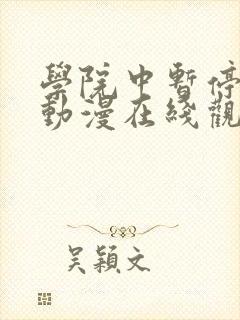 學院中暫停
動漫在綫觀
吴穎文